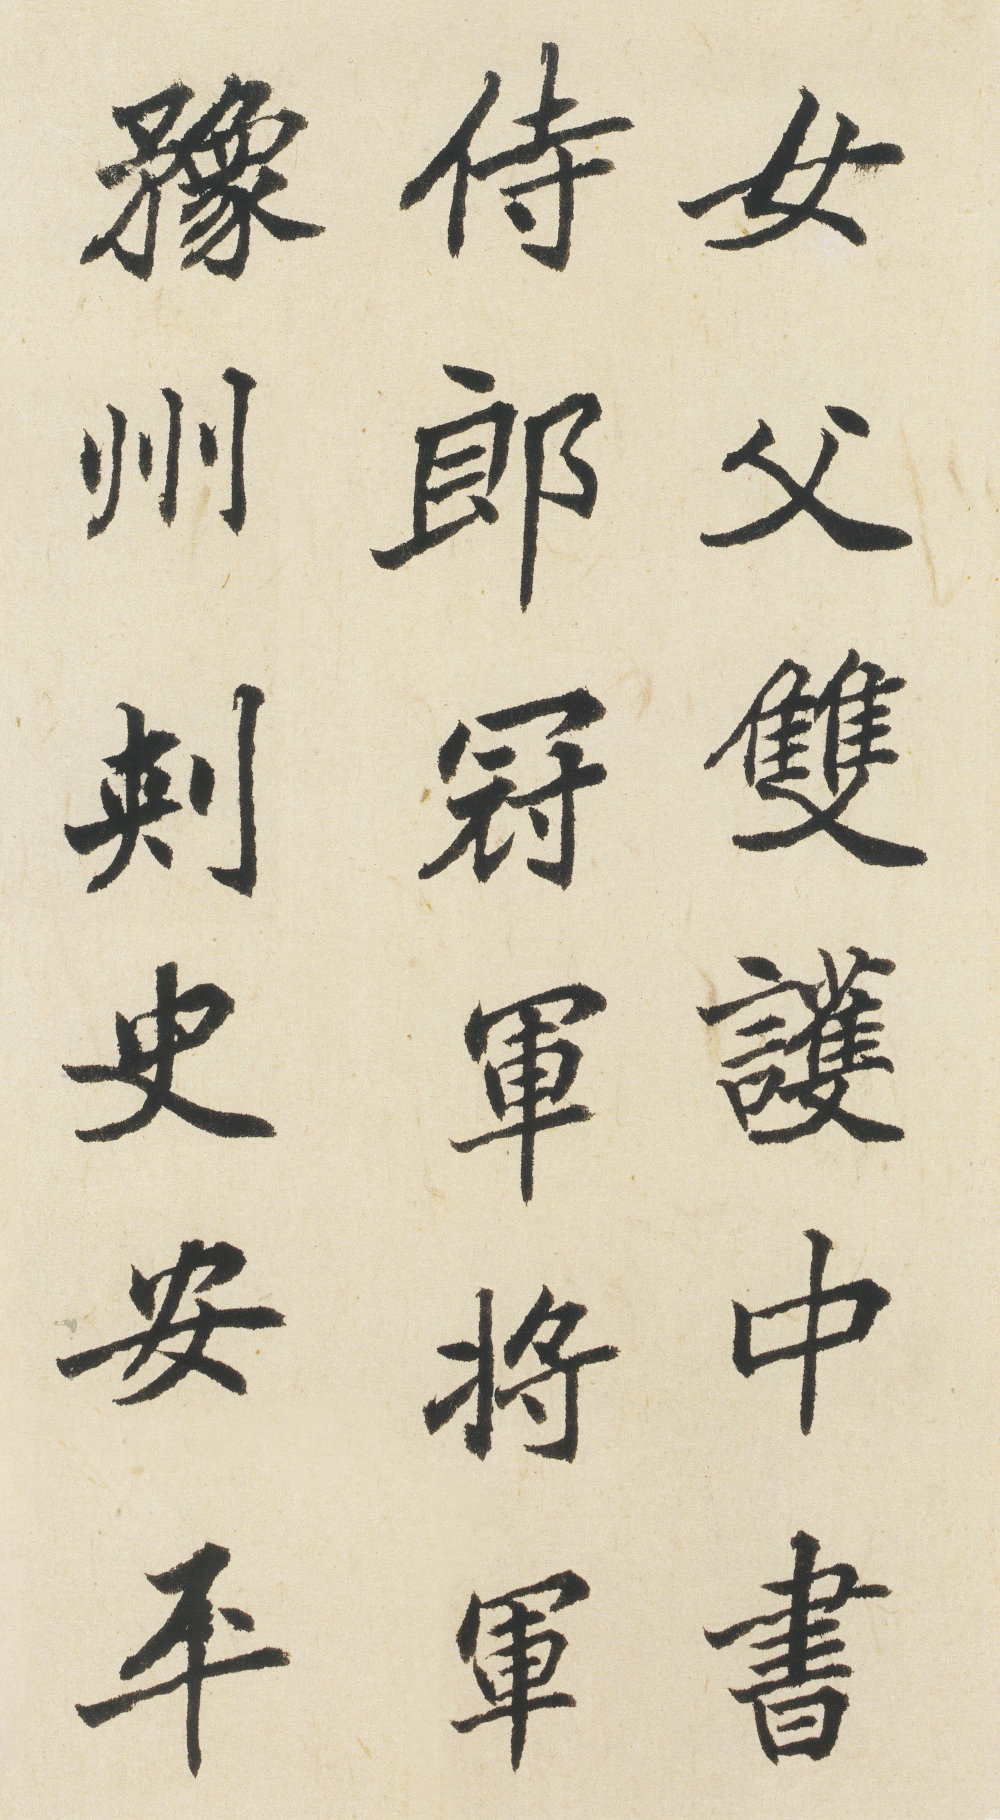 女父雙護中書
侍郎冠軍將軍
豫州刺史安平